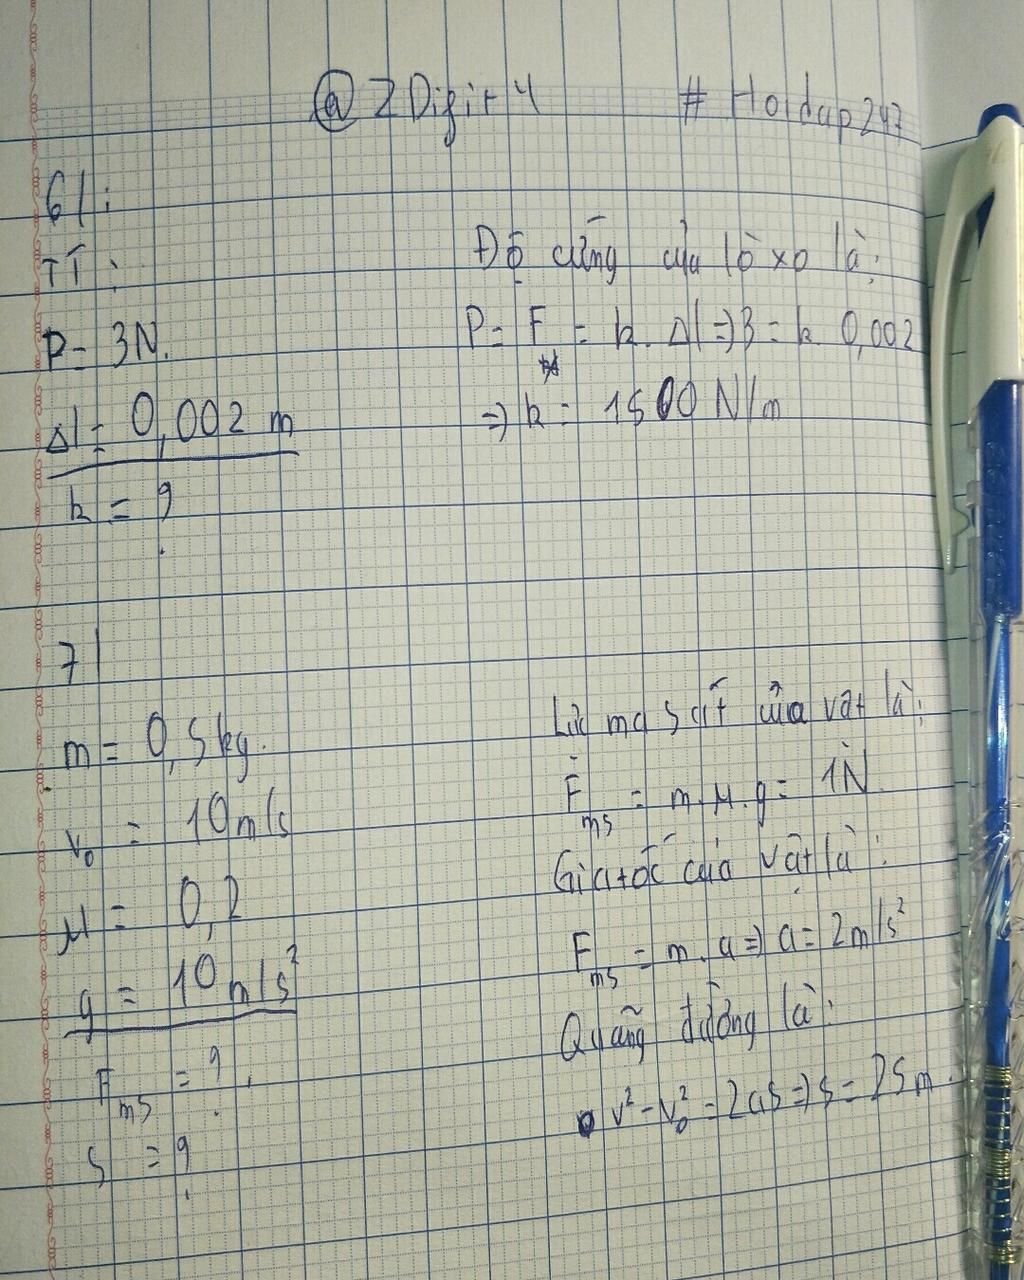 @ZDigit4 #Hoidap247
6/:
TT:
P = 3N.
Δl = 0,002 m
k = ?
Độ cứng của lò xo là:
P = F = k. Δl => 3 = k. 0,002
=> k = 1500 N/m
7/
m = 0,5 kg.
v₀ = 10 m/s
μ = 0,2
g = 10 m/s²
Fms = ?.
s = ?
Lực ma sát của vật là:
Fms = m.μ.g = 1N.
Gia tốc của vật là:
Fms = m.a => a = 2m/s²
Quãng đường là:
v² - v₀² = 2as => s = 25m.